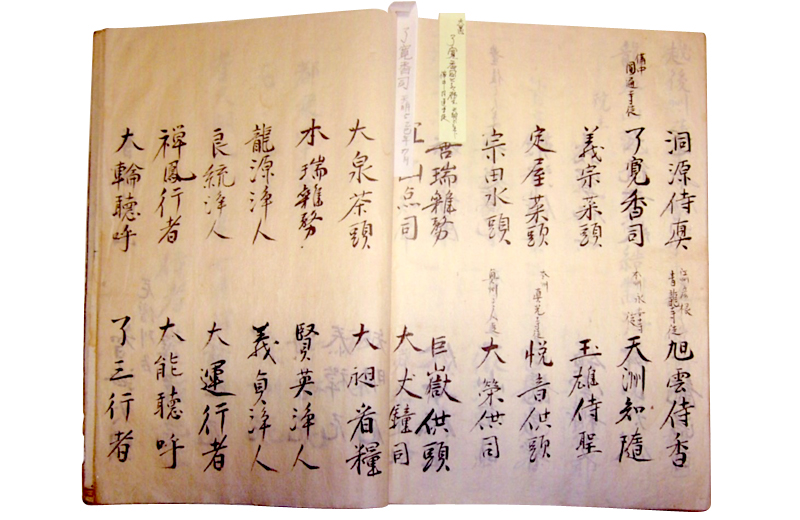 洞源侍真
旭雲侍香
備中
了寛香司
天洲知随
義宗菜頭
玉雄侍聖
定屋菜頭
悦音供頭
宗田水頭
大策供司
吉瑞雑務
巨嶽供頭
山点司
大犬鐘司
大泉茶頭
大昶看糧
木瑞雑務
賢英浄人
龍源浄人
義貞浄人
良統浄人
大運行者
禅鳳行者
大能聴呼
大輪聴呼
了三行者
了寛香司